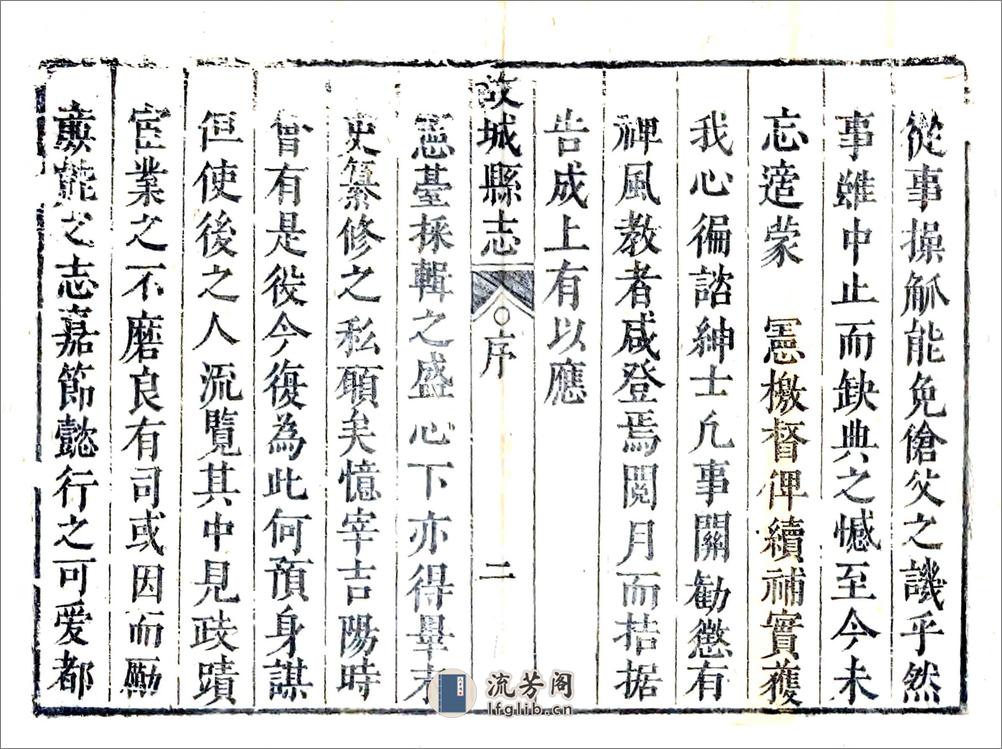 從事操觚能免傖父之譏乎然
事雖中止而缺典之憾至今未
忘適蒙 憲檄督俾續補實獲
我心徧諮紳士凡事關勸懲有
裨風教者咸登焉閱月而拮据
告成上有以應
故城縣志 序 二
憲臺採輯之盛心下亦得畢末
吏纂修之私願矣憶宰吉陽時
曾有是役今復為此何預身謀
但使後之人流覽其中見政蹟
宦業之不磨良有司或因而勵
廉能之志嘉節懿行之可爱都
流芳阁
lfglib.cn